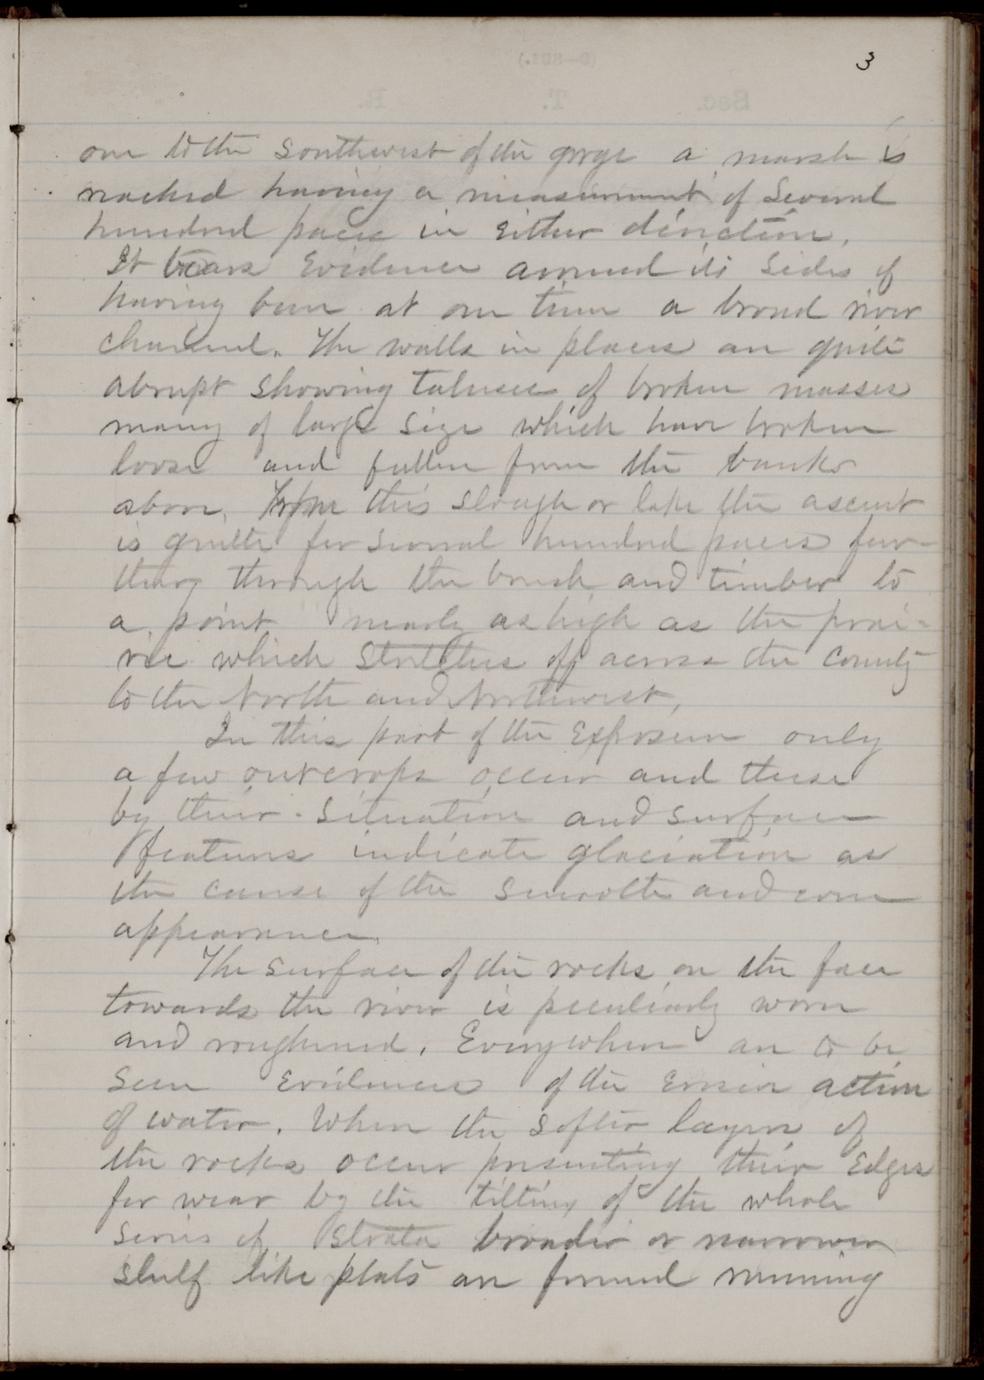 3
one to the southwest of the gorge a marsh is
reached having a measurement of several
hundred paces in either direction.
It bears evidence around its sides of
having been at one time a broad river
channel. The walls in places are quite
abrupt showing taluses of broken masses
many of large size which have broken
loose and fallen from the banks
above. From this slough or lake the ascent
is gentle for several hundred paces fur-
ther through the brush and timber to
a point nearly as high as the prai-
rie which stretches off across the county
to the North and Northwest,
In this part of the exposure only
a few outcrops occur and these
by their situation and surface
features indicate glaciation as
the cause of the smooth and worn
appearance.
The surface of the rocks on the face
towards the river is peculiarly worn
and roughened. Everywhere are to be
seen evidences of the erosive action
of water. Where the softer layers of
the rocks occur presenting their edges
for wear by the tilting of the whole
series of strata broader or narrower
shelf like plats are formed running